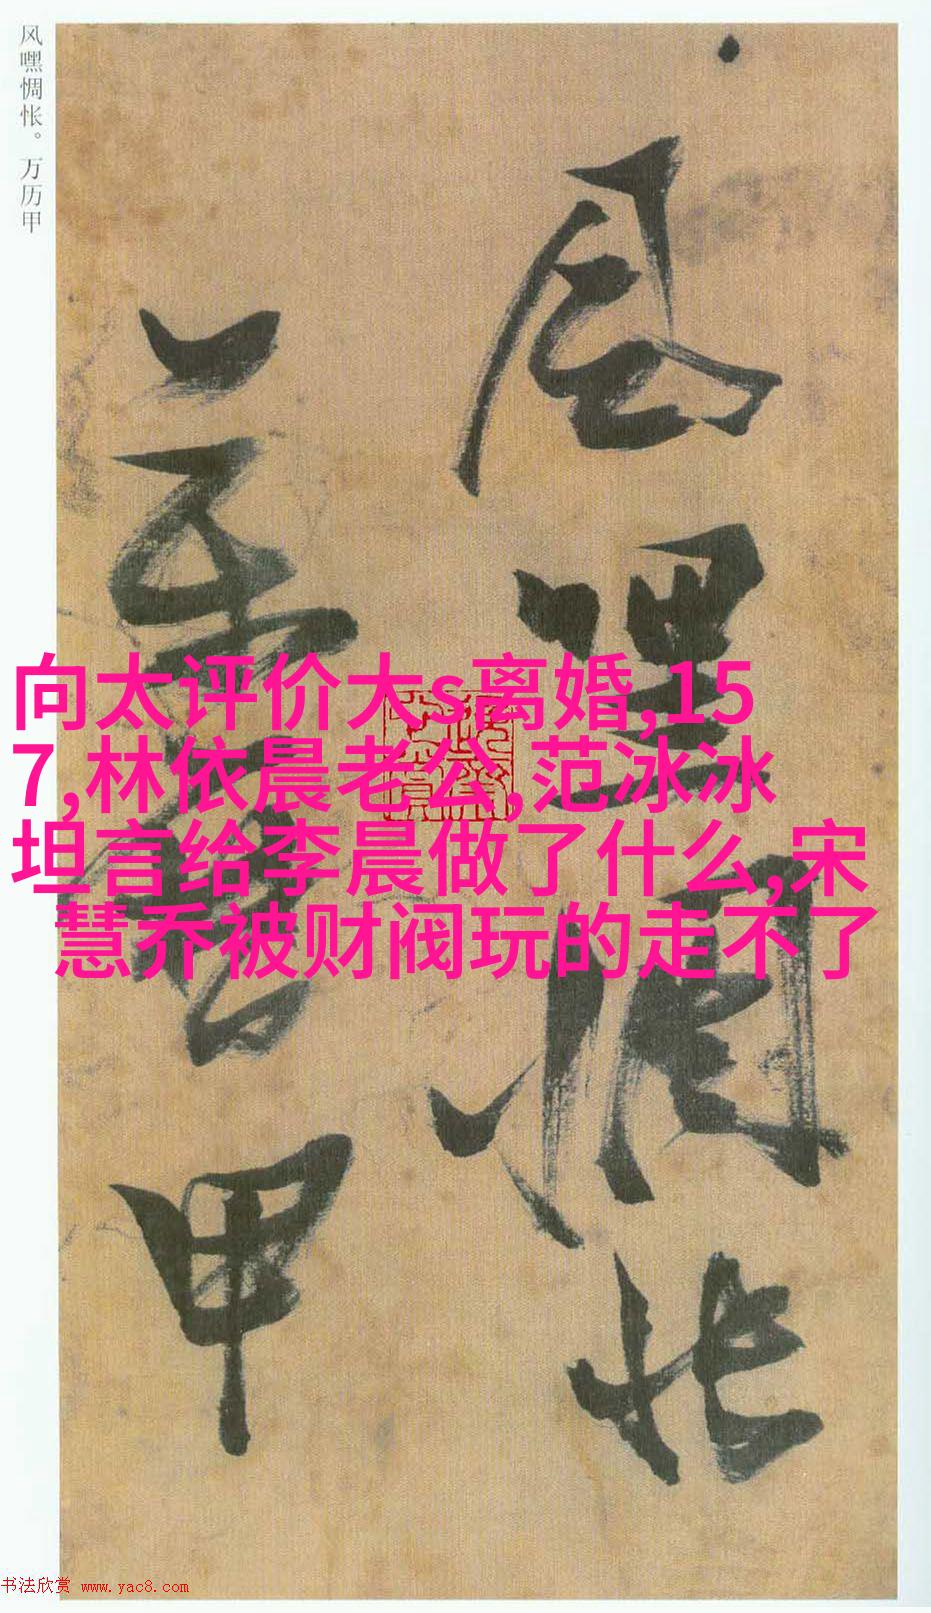 风嘿惆怅。万历甲
风嘿惆怅
万历甲
向太评价大s离婚,15
7,林依晨老公,范冰冰
坦言给李晨做了什么,宋
慧乔被财阀玩的走不了
书法欣赏 www.yac8.com